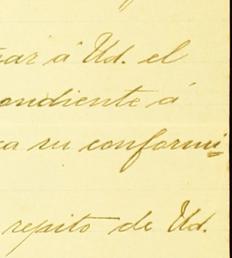 ar á Ud. el
ondiente á
a su conformi
repito de Ud.